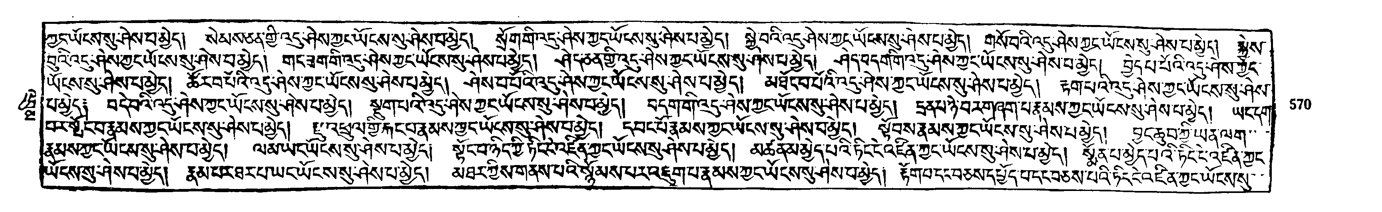 ཀྱང་ཡོངས་སུ་ཤེས་པ་མྱེད། སེམས་ཅན་གྱི་འདུ་ཤེས་ཀྱང་ཡོངས་སུ་ཤེས་པ་མྱེད། སྲོག་གི་འདུ་ཤེས་ཀྱང་ཡོངས་སུ་ཤེས་པ་མྱེད། སྐྱེ་བའི་འདུ་ཤེས་ཀྱང་ཡོངས་སུ་ཤེས་པ་མྱེད། གསོ་བའི་འདུ་ཤེས་ཀྱང་ཡོངས་སུ་ཤེས་པ་མྱེད། སྐྱེས་
བུའི་འདུ་ཤེས་ཀྱང་ཡོངས་སུ་ཤེས་པ་མྱེད། གང་ཟག་གི་འདུ་ཤེས་ཀྱང་ཡོངས་སུ་ཤེས་པ་མྱེད། ཤེད་ཅན་གྱི་འདུ་ཤེས་ཀྱང་ཡོངས་སུ་ཤེས་པ་མྱེད། ཤེད་བདག་གི་འདུ་ཤེས་ཀྱང་ཡོངས་སུ་ཤེས་པ་མྱེད། བྱེད་པ་པོའི་འདུ་ཤེས་ཀྱང་
ཡོངས་སུ་ཤེས་པ་མྱེད། ཚོར་བ་པོའི་འདུ་ཤེས་ཀྱང་ཡོངས་སུ་ཤེས་པ་མྱེད། ཤེས་པ་པོའི་འདུ་ཤེས་ཀྱང་ཡོངས་སུ་ཤེས་པ་མྱེད། མཐོང་བ་པོའི་འདུ་ཤེས་ཀྱང་ཡོངས་སུ་ཤེས་པ་མྱེད། རྟག་པའི་འདུ་ཤེས་ཀྱང་ཡོངས་སུ་ཤེས་
པ་མྱེད། བདེ་བའི་འདུ་ཤེས་ཀྱང་ཡོངས་སུ་ཤེས་པ་མྱེད། སྡུག་པའི་འདུ་ཤེས་ཀྱང་ཡོངས་སུ་ཤེས་པ་མྱེད། བདག་གི་འདུ་ཤེས་ཀྱང་ཡོངས་སུ་ཤེས་པ་མྱེད། དྲན་པ་ཉེ་བར་གཞག་པ་རྣམས་ཀྱང་ཡོངས་སུ་ཤེས་པ་མྱེད། ཡང་དག་
བར་སྤོང་བ་རྣམས་ཀྱང་ཡོངས་སུ་ཤེས་པ་མྱེད། རྫུ་འཕྲུལ་གྱི་རྐང་བ་རྣམས་ཀྱང་ཡོངས་སུ་ཤེས་པ་མྱེད། དབང་པོ་རྣམས་ཀྱང་ཡོངས་སུ་ཤེས་པ་མྱེད། སྟོབས་རྣམས་ཀྱང་ཡོངས་སུ་ཤེས་པ་མྱེད། བྱང་ཆུབ་ཀྱི་ཡན་ལག་
རྣམས་ཀྱང་ཡོངས་སུ་ཤེས་པ་མྱེད། ལམ་ཡང་ཡོངས་སུ་ཤེས་པ་མྱེད། སྟོང་བ་ཉིད་ཀྱི་ཏིང་ངེ་འཛིན་ཀྱང་ཡོངས་སུ་ཤེས་པ་མྱེད། མཚན་མ་མྱེད་པའི་ཏིང་ངེ་འཛིན་ཀྱང་ཡོངས་སུ་ཤེས་པ་མྱེད། སྨོན་པ་མྱེད་པའི་ཏིང་ངེ་འཛིན་ཀྱང་
ཡོངས་སུ་ཤེས་པ་མྱེད། རྣམ་པར་ཐར་པ་ཡང་ཡོངས་སུ་ཤེས་པ་མྱེད། མཐར་གྱིས་གནས་པའི་སྙོམས་པར་འཇུག་པ་རྣམས་ཀྱང་ཡོངས་སུ་ཤེས་པ་མྱེད། རྟོག་པ་དང་བཅས་དཔྱོད་པ་དང་བཅས་པའི་ཏིང་ངེ་འཛིན་ཀྱང་ཡོངས་སུ་
570